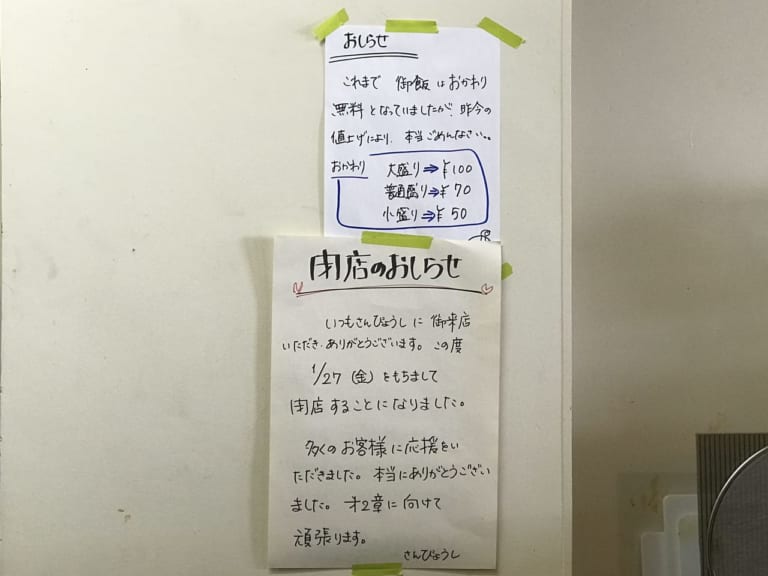 おしらせ
これまで 御飯はおかわり
無料となっていましたが、昨今の
値上げにより、本当ごめんなさい。。
おかわり
大盛り⇒¥100
普通盛り⇒¥70
小盛り⇒¥50
閉店のおしらせ
いつもさんびょうしに御来店
いただき、ありがとうございます。この度
1/27(金)をもちまして
閉店することになりました。
多くのお客様に応援をい
ただきました。本当にありがとうござい
ました。才2章に向けて
頑張ります。
さんびょうし